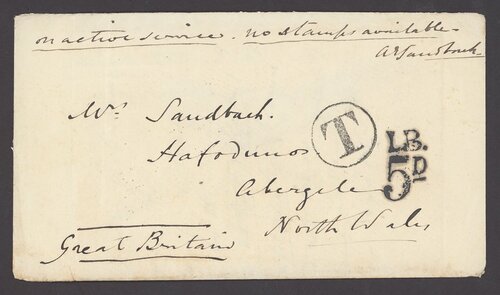 on active service. no stamps available.
AESandbach.
Mrs Sandbach.
Hafodunos
Abergele
North Wales
Great Britain
T
I.B.
5D